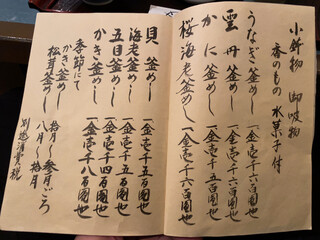 小鉢物 御吸物
香のもの 水菓子付
うなぎ釜めし 一金壱千六百圓也
雲丹釜めし 一金壱千六百圓也
かに釜めし 一金壱千六百圓也
桜海老釜めし 一金壱千六百圓也
貝釜めし 一金壱千五百圓也
海老釜めし 一金壱千五百圓也
五目釜めし 一金壱千五百圓也
かき釜めし 一金壱千八百圓也
季節にて
かき釜めし 拾月〜参月ごろ
松茸釜めし 八月〜拾月
別途消費税